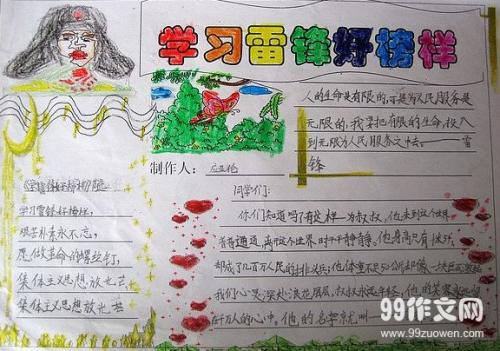 学习雷锋好榜样
人的生命是有限的,可是为人民服务是
无限的,我要把有限的生命,投入
到无限为人民服务之中去。——雷
锋
制作人:
《学习雷锋好榜样》
学习雷锋好榜样,
艰苦朴素永不忘,
愿做革命的螺丝钉,
集体主义思想放光芒,
集体主义思想放光芒
同学们:
你们知道吗?有这样一为叔叔,他来到这个世界
普普通通,离开这个世界,时平平静静。他身高只有
却成了几百万人民的
我们心灵深处浪花层层,叔叔永远年轻,他的笑容永远
在千万人的心中。他的名字就叫
99作文网
www.99zuowen.com